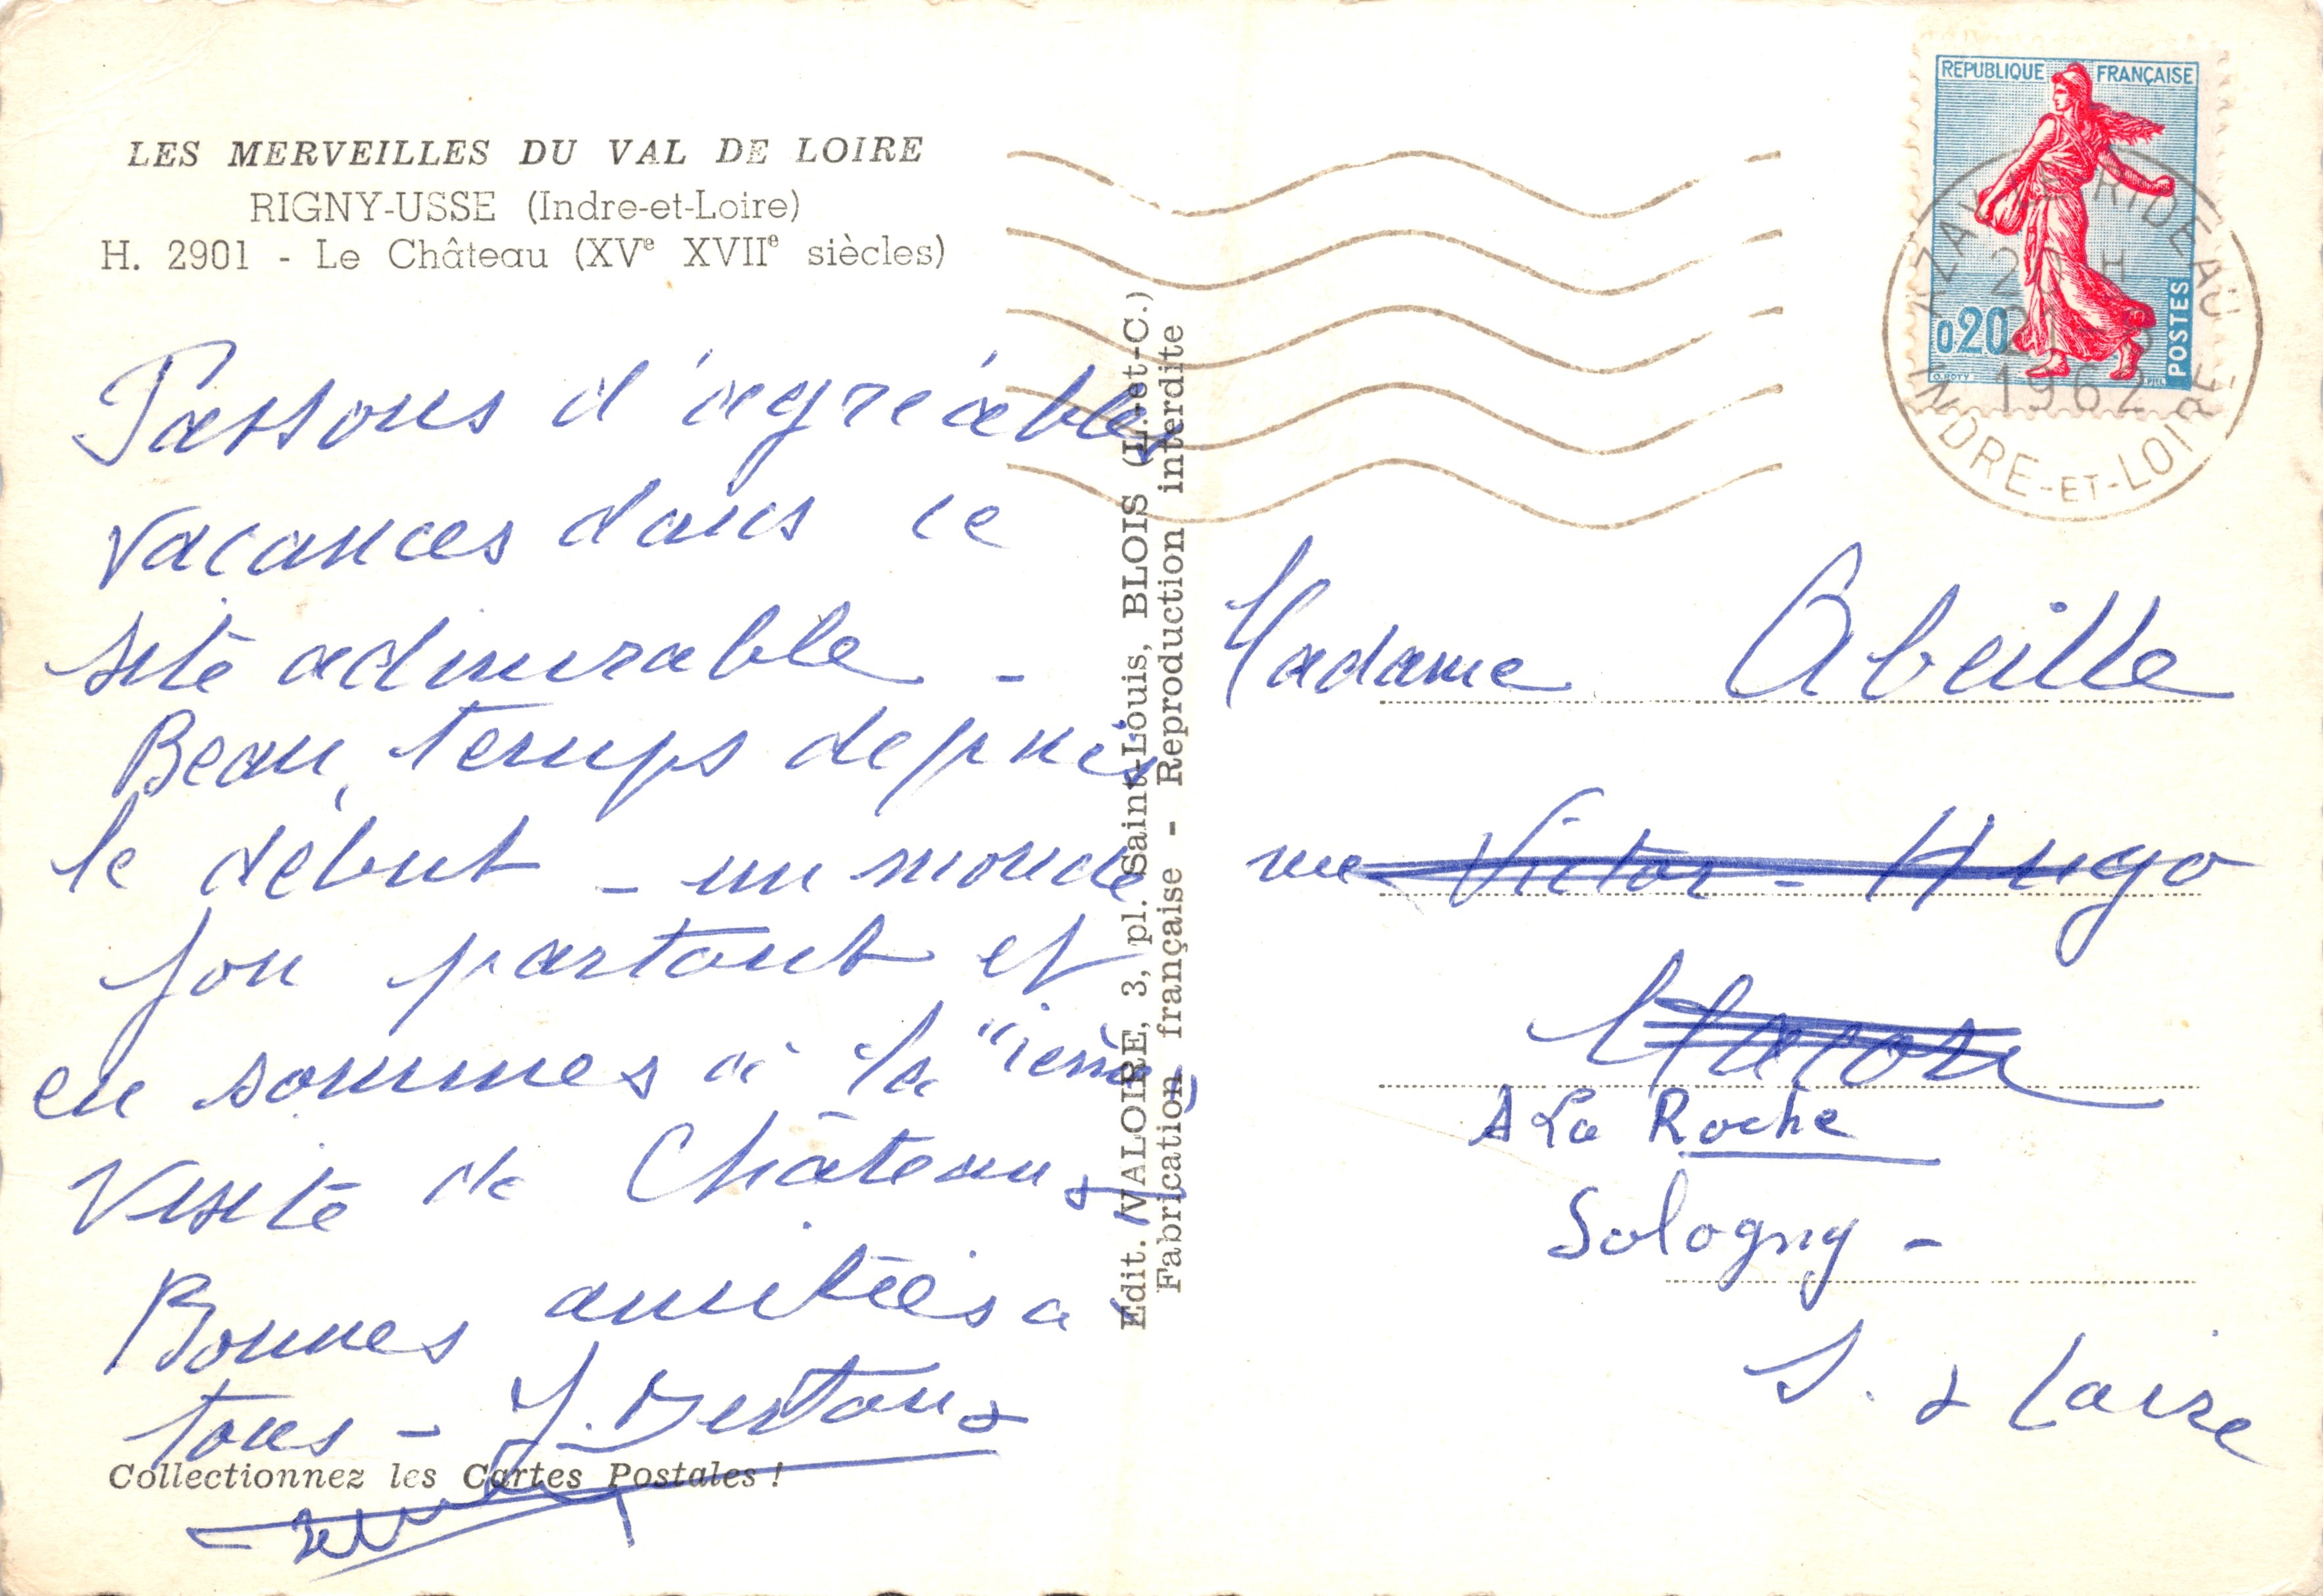 LES MERVEILLES DU VAL DE LOIRE
RIGNY-USSE (Indre-et-Loire)
H. 2901 - Le Château (XVe XVIIe siècles)
Passons d'agréables
vacances dans ce
site admirable -
Beau temps depuis
le début - un monde
fou partout et
en sommes à la "ième
visite de Châteaux
Bonnes amitiés à
tous - J.
Collectionnez les Cartes Postales !
Edit. VALOIRE, 3, pl. Saint-Louis, BLOIS (L.-et-C.)
Fabrication française - Reproduction interdite
REPUBLIQUE FRANÇAISE
0,20
POSTES
O. ROTY
PIEL
AZAY-LE-RIDEAU
20 H
21 - 8
1962
INDRE-ET-LOIRE
Madame Abeille
rue Victor-Hugo
Macon
A La Roche
Sologny -
S. & Loire